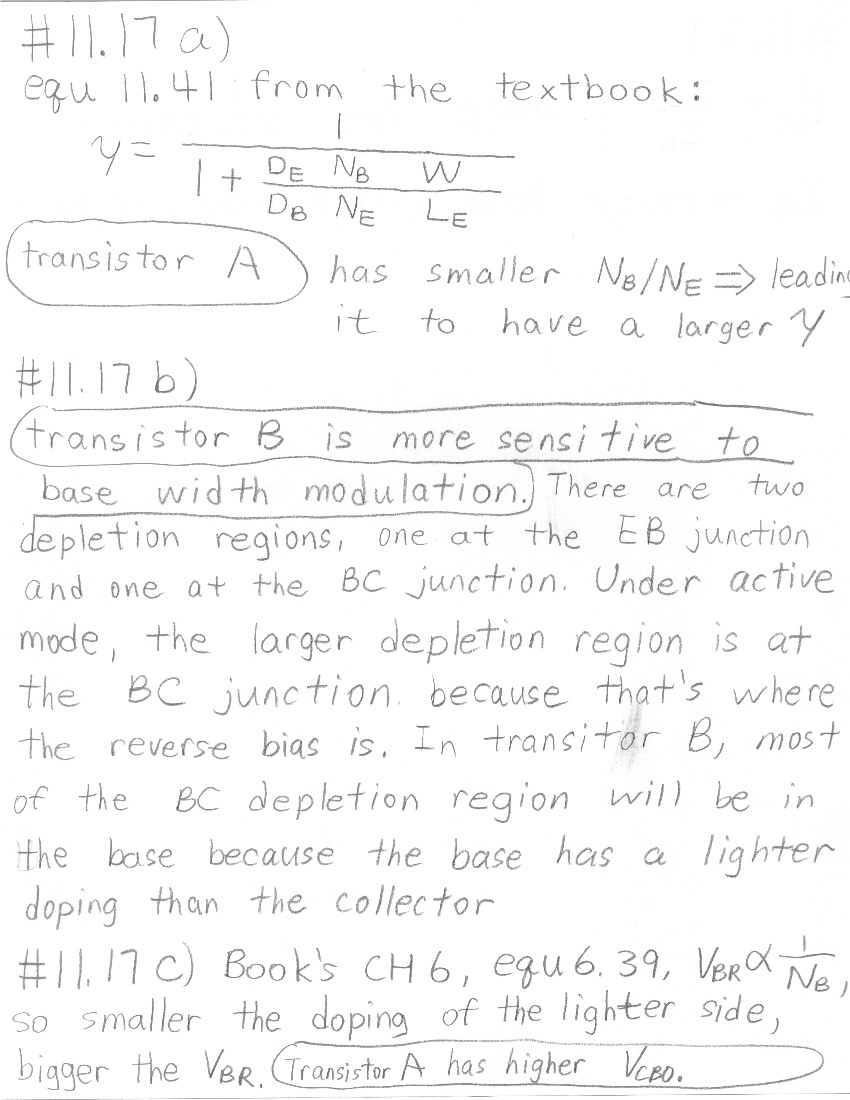 #11.17 a)
equ 11.41 from the textbook:
γ = 1 / (1 + (D_E N_B W)/(D_B N_E L_E))
transistor A has smaller N_B/N_E ⇒ leading
it to have a larger γ
#11.17 b)
transistor B is more sensitive to
base width modulation. There are two
depletion regions, one at the EB junction
and one at the BC junction. Under active
mode, the larger depletion region is at
the BC junction because that's where
the reverse bias is. In transitor B, most
of the BC depletion region will be in
the base because the base has a lighter
doping than the collector
#11.17 c) Book's CH 6, equ 6.39, V_BR ∝ 1/N_B,
so smaller the doping of the lighter side,
bigger the V_BR. Transistor A has higher V_CBO.